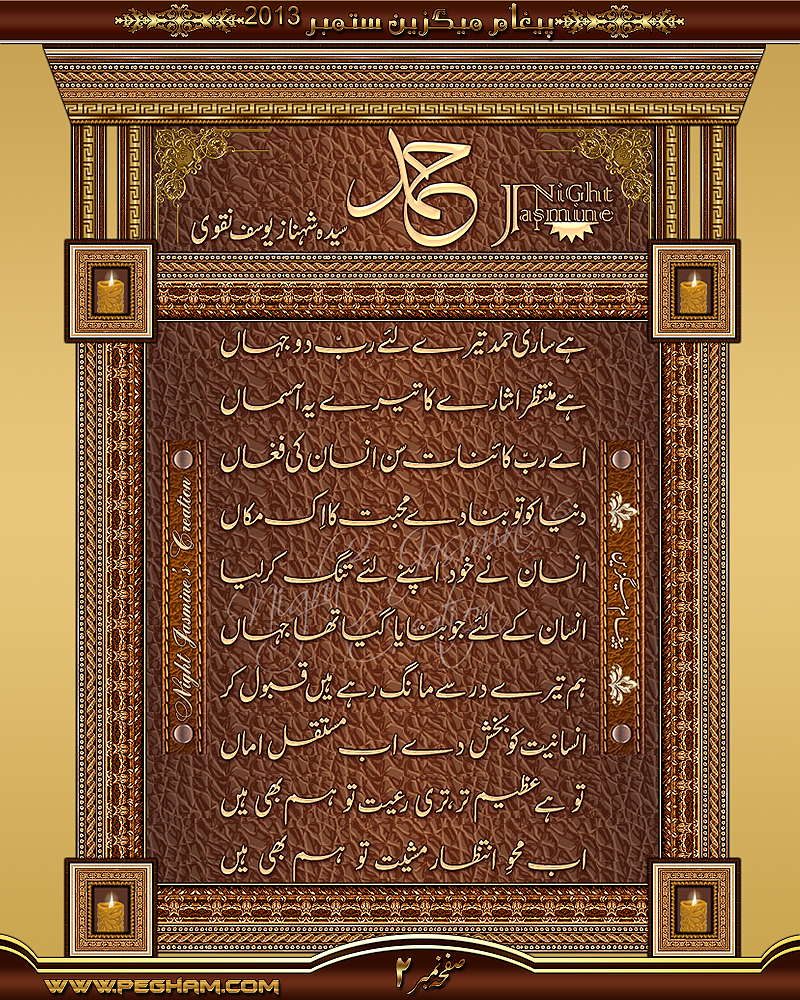 پیغام میگزین ستمبر 2013
حمد
Night Jasmine
سیدہ شہناز یوسف نقوی
ہے ساری حمد تیرے لئے ربّ دو جہاں
ہے منتظر اشارے کا تیرے یہ آسماں
اے ربّ کائنات سن انسان کی فغاں
دنیا کو تو بنا دے محبت کا اِک مکاں
انسان نے خود اپنے لئے تنگ کر لیا
انسان کے لئے جو بنایا گیا تھا جہاں
ہم تیرے در سے مانگ رہے ہیں قبول کر
انسانیت کو بخش دے اب مستقل اماں
تو ہے عظیم تر، تری رعیت تو ہم بھی ہیں
اب محوِ انتظار مشیت تو ہم بھی ہیں
Night Jasmine's Creation
پیغام میگزین
Night Jasmine's Creation
صفحہ نمبر ۲
WWW.PEGHAM.COM